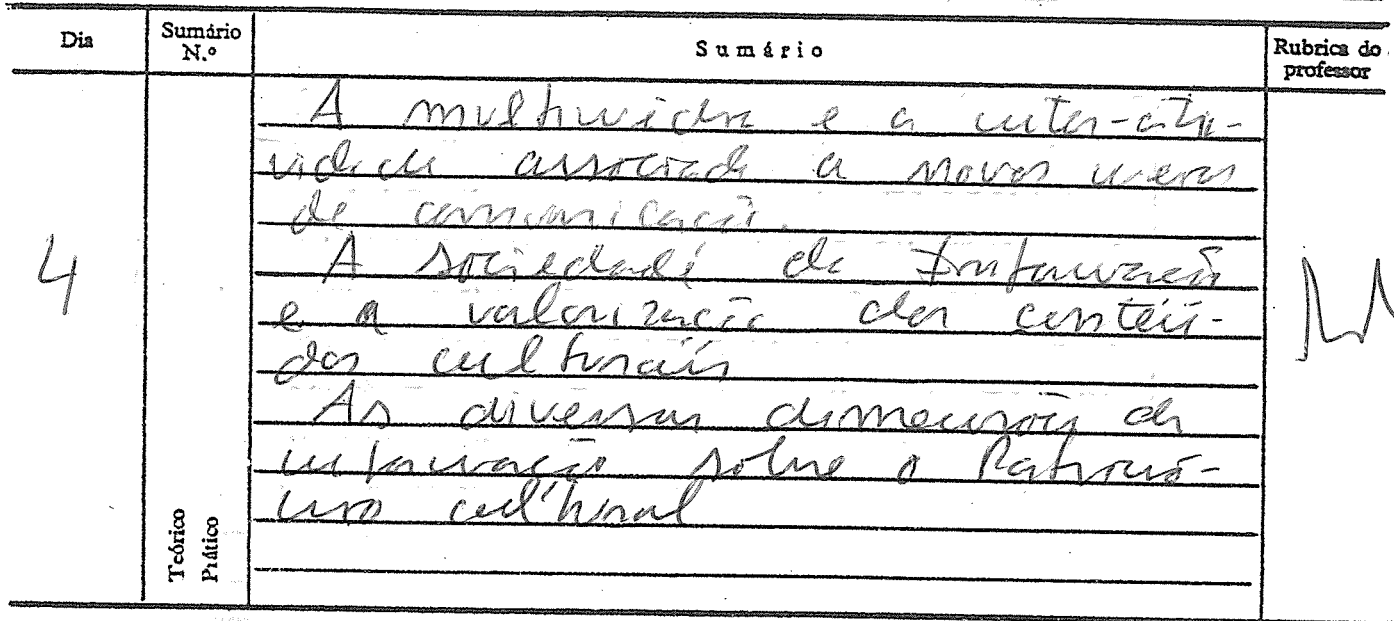 Dia
Sumário N.º
Sumário
Rubrica do professor
A multimédia e a inter-ati-
vidade associada a novos meios
de comunicação.
4
A sociedade da Informação
e a valorização dos conteú-
dos culturais
As diversas dimensões da
informação sobre o Patrimó-
nio cultural
Teórico
Prático